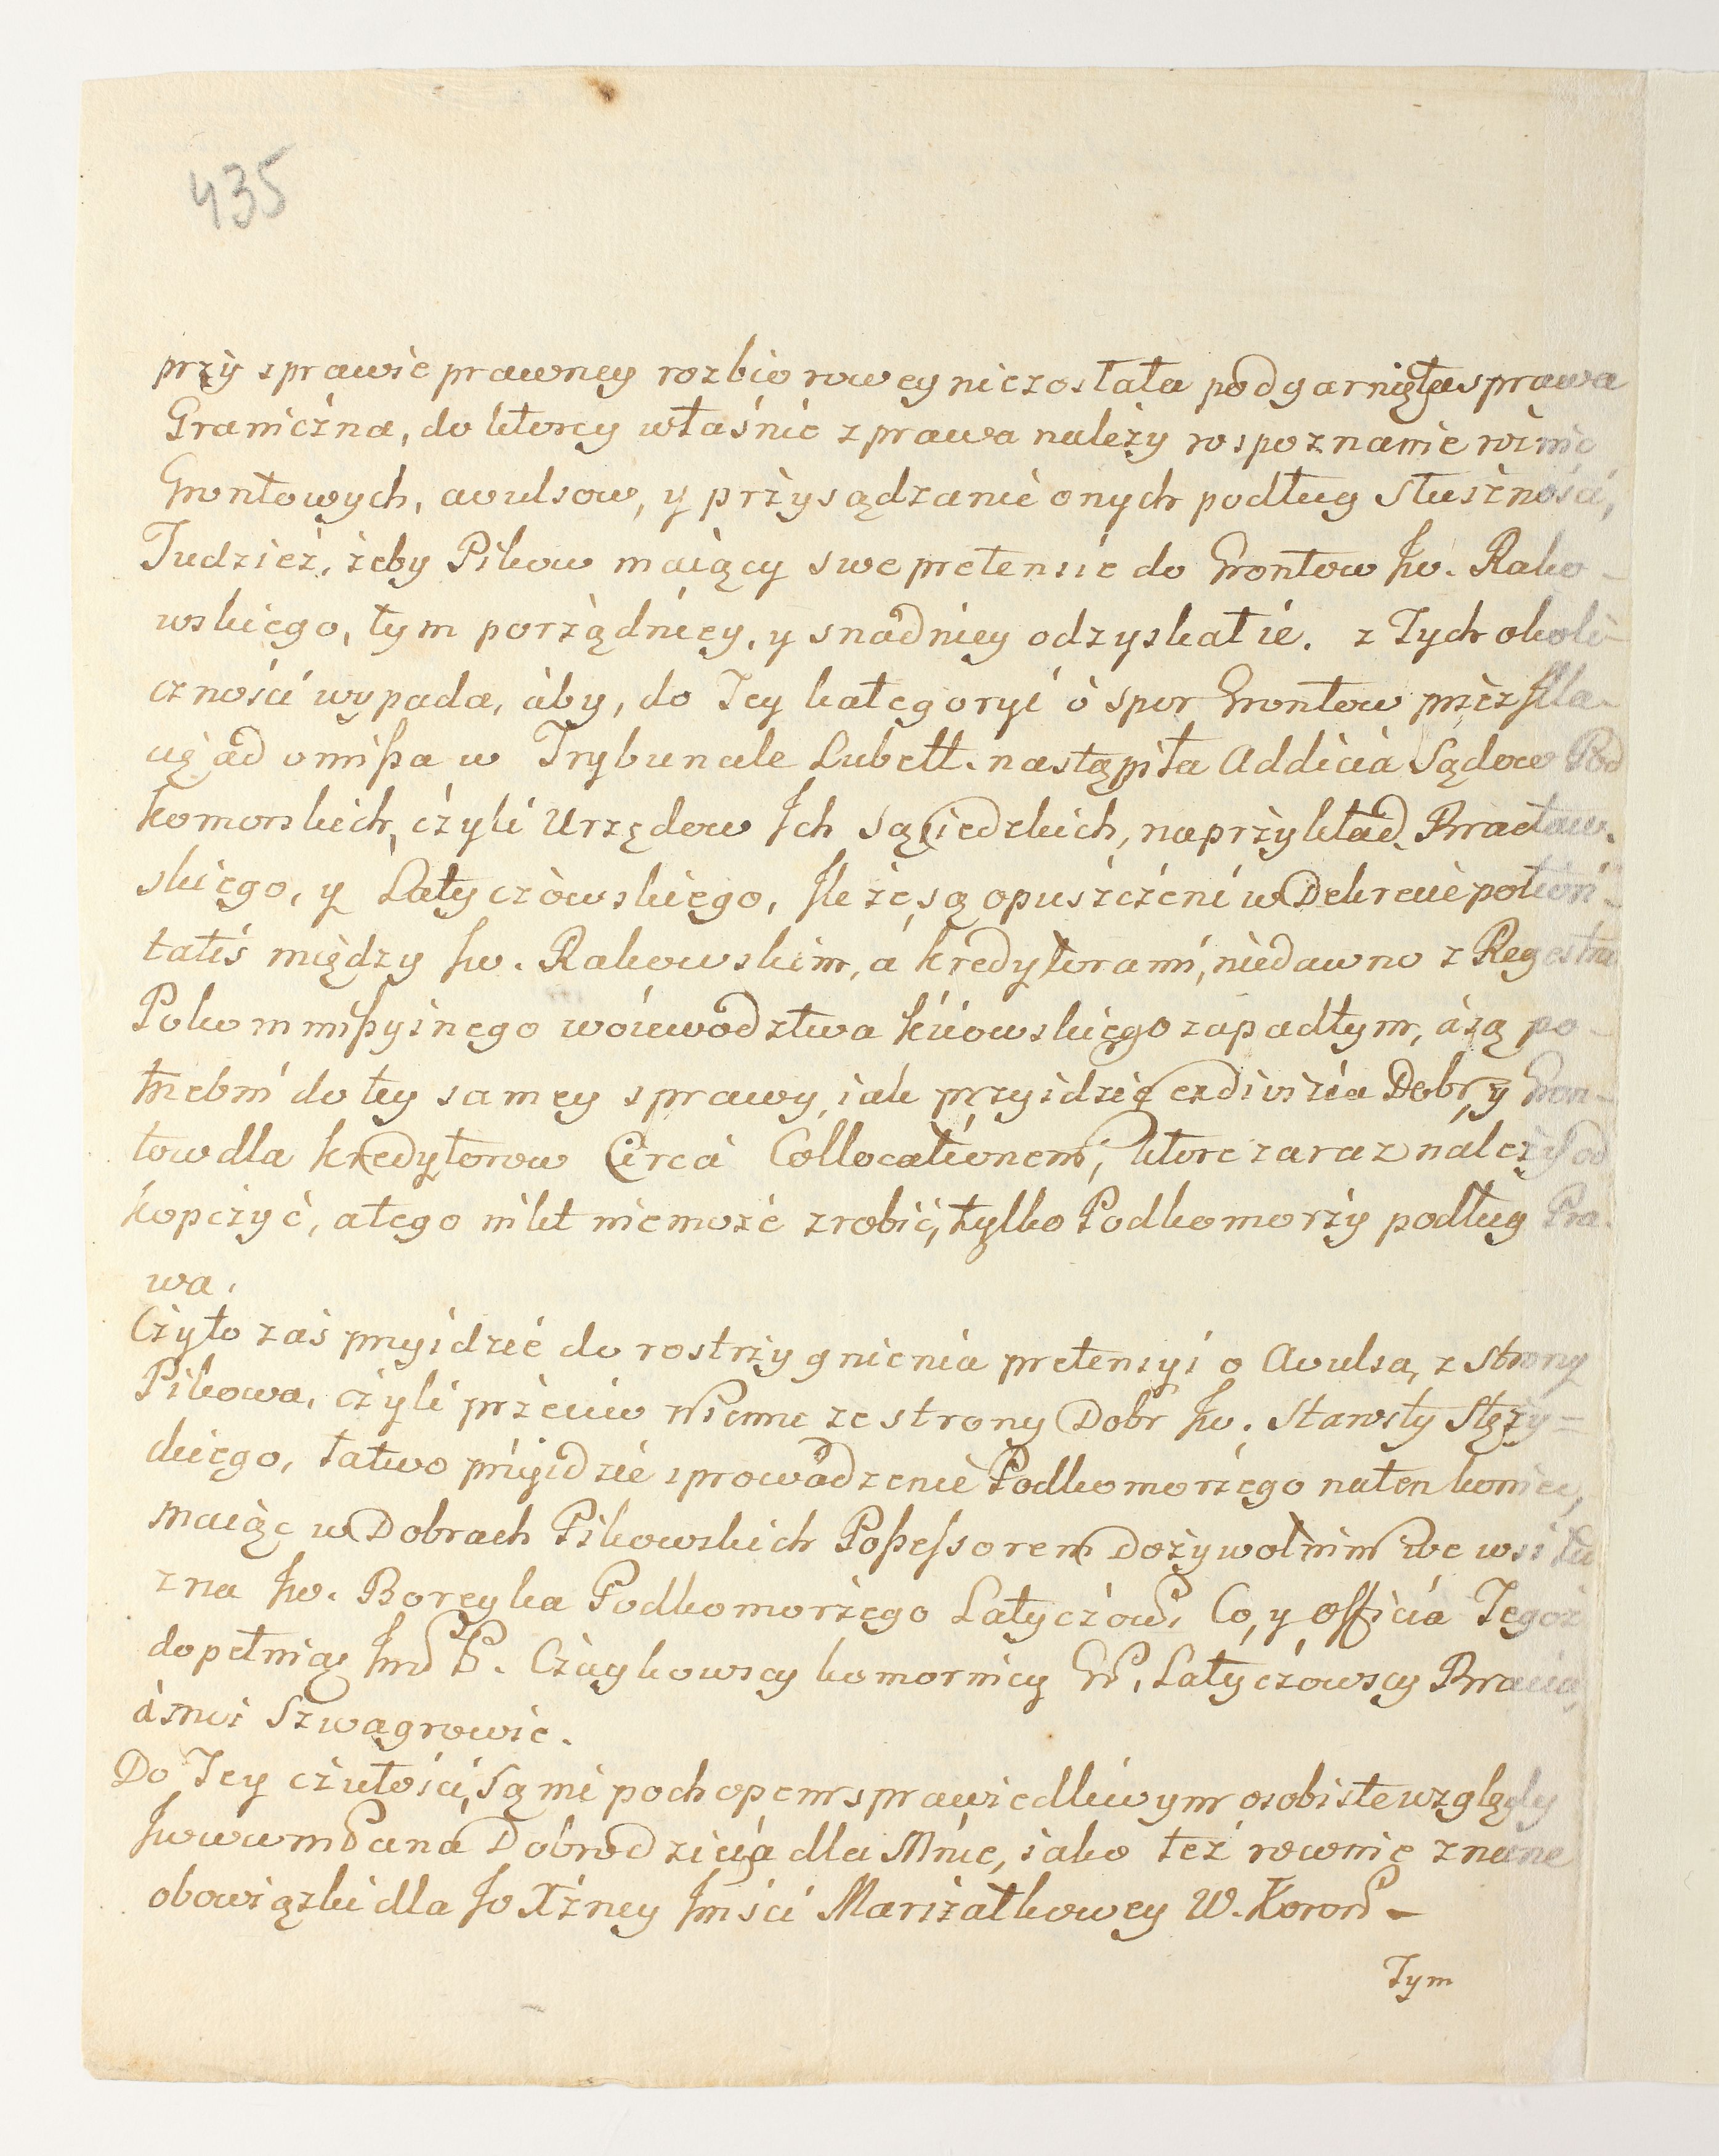 435
przy sprawie prawney rozbiorowey niezostała podgarnięta sprawa
Graniczna, do ktorey właśnie z prawa należy rospoznanie
Grontowych, avulsow, y przysądzanie onych podług Słuszności,
Tudzież, żeby Pikow maiący swe pretensie do Grontow Jw. Rako-
wskiego, tym porządniey, y snadniey odzyskał ie. z Tych okoli-
czności wypada, aby, do Tey kategoryi o spor Grontow przez
ad omissa w Trybunale Lubell. nastąpiła Addicia Sądow Pod
komorskich, czyli Urzędow Ich Sąsiedzkich, naprzykład Bracław-
skiego, y Latyczowskiego, Ile że są opuszczeni w Dekrecie potiori-
tatis między Jw. Rakowskim, a kredytorami, niedawno z Regestru
Pokommissyinego woiewodztwa kiiowskiego zapadłym, a są po-
trzebni do tey samey sprawy, iak przyidzie exdivizia Dobr, y Gron-
tow dla kredytorow Circa Collocationem, ktore zaraz należy od
kopczyć, a tego nikt niemoże zrobić, tylko Podkomorzy podług Pra-
wa.
Czy to zaś przyidzie do rostrzygnienia pretensyi o Avulsa, z Strony
Pikowa, czyli przeciw niemu ze strony Dobr Jw. Starosty Stęży-
ckiego, łatwo przyidzie sprowadzenie Podkomorzego na ten koniec,
maiąc w Dobrach Pikowskich Possessorem Dożywotnim we wsi
Jw. Boreyka Podkomorzego Latyczow. Co, y officia Tegoż
dopełnią P. Czaykowscy komornicy Latyczowscy Bracia,
a moi Szwagrowie.
Do Tey czułości, są mi pochopem sprawiedliwym osobiste względy
Jwwm Pana Dobrodzieia dla Mnie, iako też rownie znane
obowiązki dla Jo Xżney Jmści Marszałkowey W. Koron-
Tym